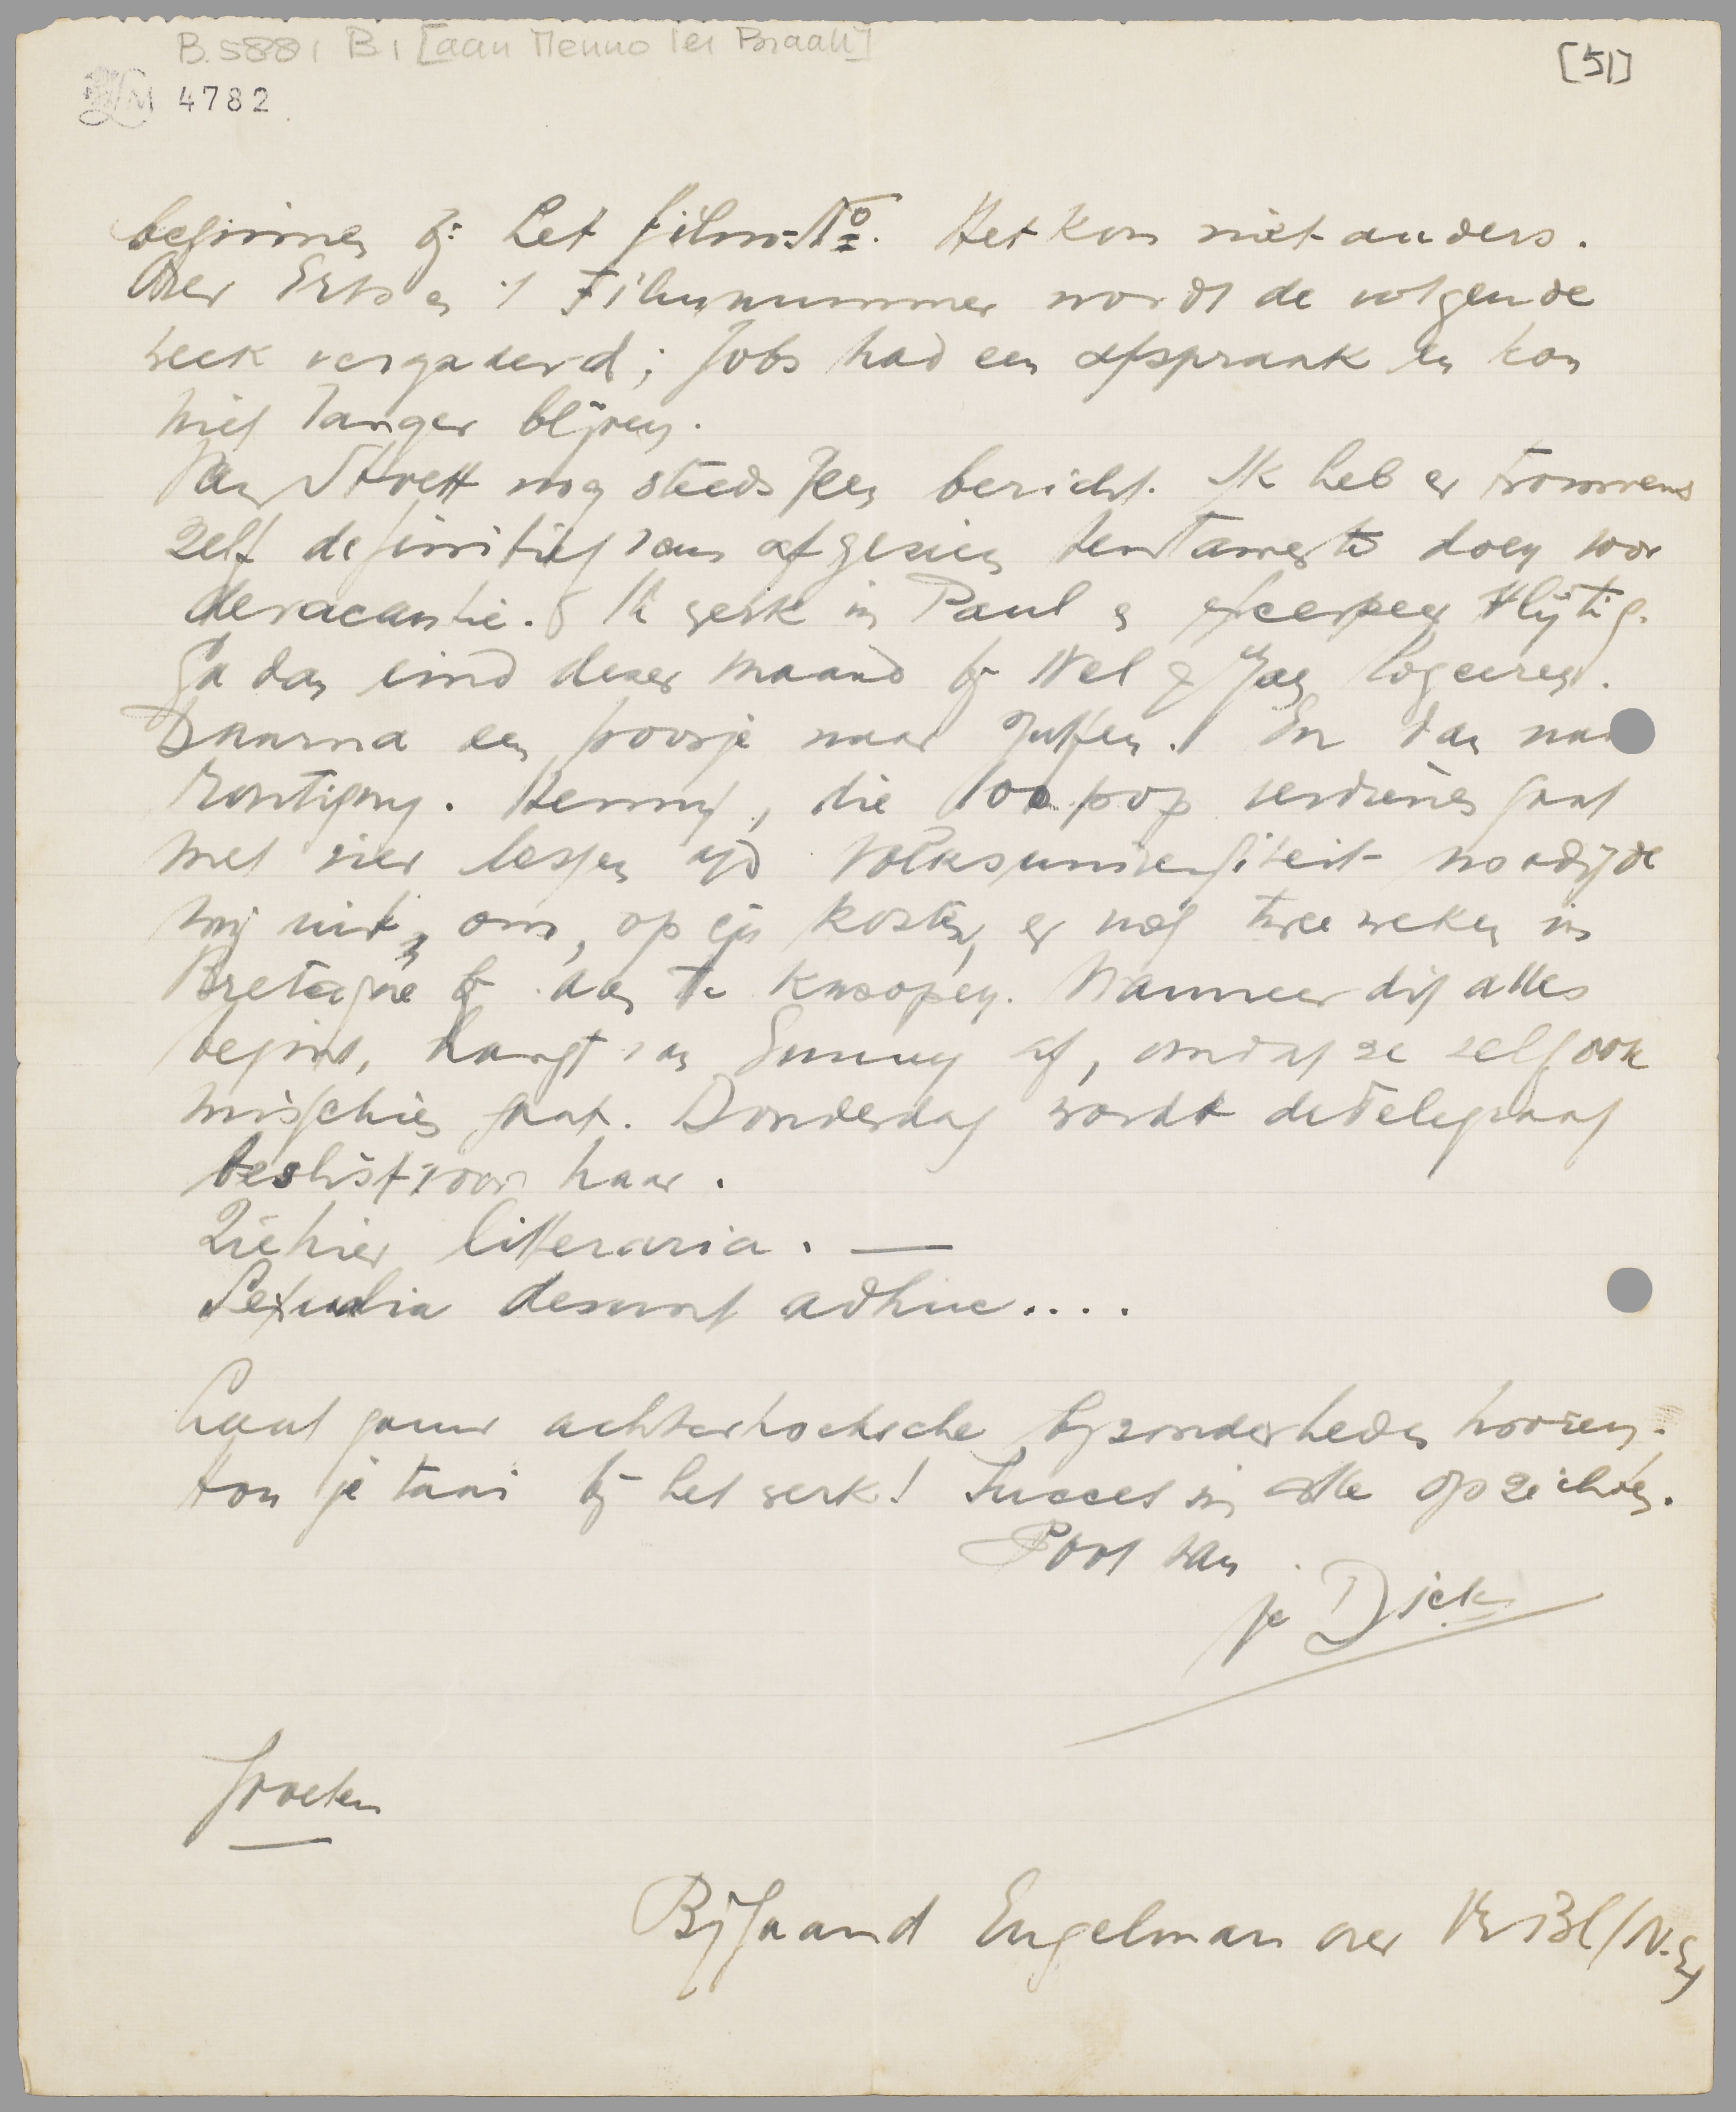 B.5881 B1 [aan Menno ter Braak]
[51]
LM 4782
beginnen bij het film-No. Het kon niet anders.
Over Erts en 't Filmnummer wordt de volgende
week vergaderd; Jobs had een afspraak en kon
niet langer blijven.
Van Stoett nog steeds geen bericht. Ik heb er trouwens
zelf definitief van afgezien tentamen te doen voor
de vacantie. Ik werk in Paul en vlijtig.
Ga dan eind dezer maand bij Nel & Jan logeeren.
Daarna een poosje naar Zutfen. En dan naar
Montigny. Henny, die 100 pop verdienen gaat
met vier lessen a/d Volksuniversiteit noodigde
mij uit, om, op zijn kosten, er nog twee weken in
Bretagne bij aan te knoopen. Wanneer dit alles
begint, hangt van Sunny af, omdat ze zelf ook
misschien gaat. Donderdag wordt de Telegraaf
beslist voor haar.
Ziehier litteraria. —
Sexualia desunt adhuc....
Laat gauw achterhoeksche bijzonderheden hooren.
Hou je taai bij het werk! Succes in alle opzichten.
Poot van
je Dick
Groeten
Bijgaand Engelman over Vr Bl/N.Eeuw